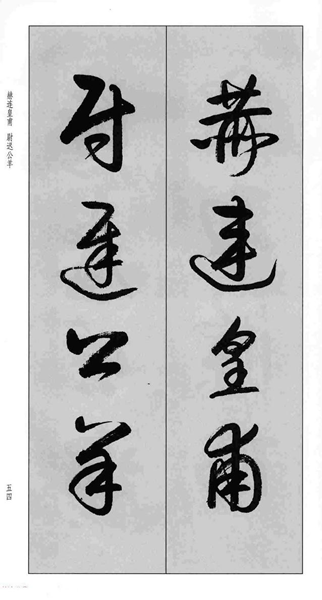 赫连皇甫
尉迟公羊
赫连皇甫 尉迟公羊
五四